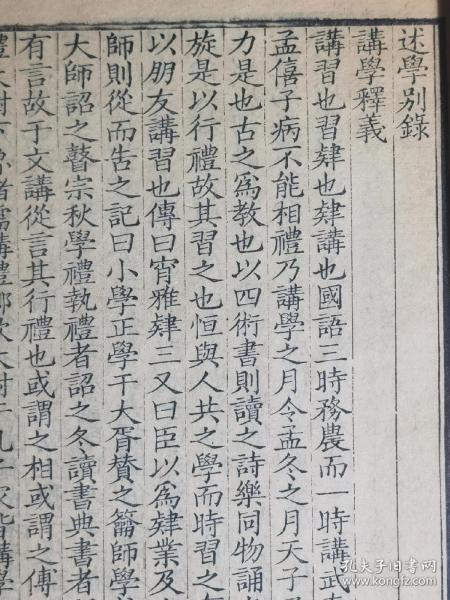 述學別錄
講學釋義
講習也習肄也肄講也國語三時務農而一時講武
孟僖子病不能相禮乃講學之月令孟冬之月天子
力是也古之為教也以四術書則讀之詩樂同物誦
旋是以行禮故其習之也恒與人共之學而時習之
以朋友講習也傳曰宵雅肄三又曰臣以為肄業及
師則從而告之記曰小學正學干大胥贊之籥師學
大師詔之瞽宗秋學禮執禮者詔之冬讀書典書者
有言故于文講從言其行禮也或謂之相或謂之傅
孔夫子旧书网